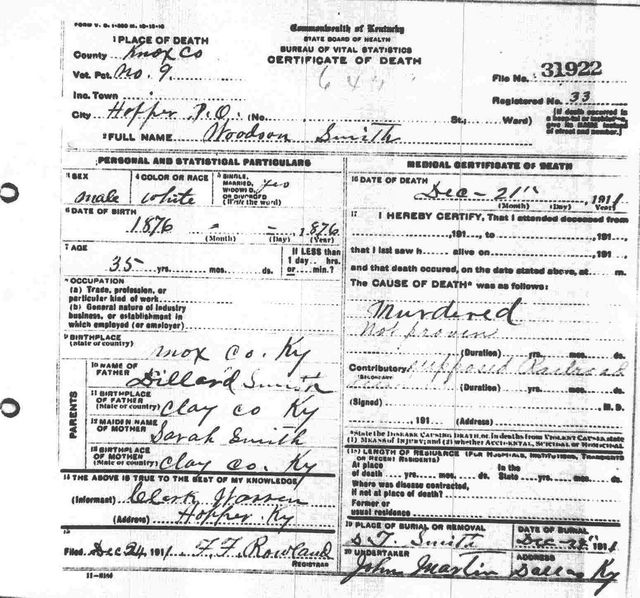 FORM V. S. 1-350 M. 10-13-10
Commonwealth of Kentucky
STATE BOARD OF HEALTH
BUREAU OF VITAL STATISTICS
CERTIFICATE OF DEATH
1 PLACE OF DEATH
County Knox Co
Vot. Pct. No. 9.
Inc. Town
City Hopper P.O. (No. St.; Ward)
File No. 31922
Registered No. 33
(If death occurred in a hospital or institution give its NAME instead of street and number.)
2 FULL NAME Woodson Smith
PERSONAL AND STATISTICAL PARTICULARS
3 SEX
male
4 COLOR OR RACE
white
5 SINGLE, MARRIED, WIDOWED, OR DIVORCED
(Write the word)
yes
6 DATE OF BIRTH
1876 - - , 1876
(Month) (Day) (Year)
7 AGE
35 yrs. mos. ds.
If LESS than
1 day hrs.
or min.?
8 OCCUPATION
(a) Trade, profession, or
particular kind of work
(b) General nature of industry
business, or establishment in
which employed (or employer)
9 BIRTHPLACE
(State or country)
Knox Co. Ky
PARENTS
10 NAME OF FATHER
Dillard Smith
11 BIRTHPLACE OF FATHER
(State or country)
Clay co Ky
12 MAIDEN NAME OF MOTHER
Sarah Smith
13 BIRTHPLACE OF MOTHER
(State or country)
Clay co. Ky
14 THE ABOVE IS TRUE TO THE BEST OF MY KNOWLEDGE
(Informant) Clerk Warren
(Address) Hopper Ky
15
Filed Dec 24 1911 F. F. Rowland
REGISTRAR
MEDICAL CERTIFICATE OF DEATH
16 DATE OF DEATH
Dec - 21", 1911
(Month) (Day) (Year)
17 I HEREBY CERTIFY, That I attended deceased from
, 191 , to , 191 ,
that I last saw h alive on , 191 ,
and that death occured, on the date stated above, at m.
The CAUSE OF DEATH* was as follows:
Murdered
Not proven
(Duration) yrs. mos. ds.
Contributory supposed
(Duration) yrs. mos. ds.
(Signed) M. D.
, 191 (Address)
*State the DISEASE CAUSING DEATH, or, in deaths from VIOLENT CAUSES, state
(1) MEANS OF INJURY; and (2) whether ACCIDENTAL, SUICIDAL or HOMICIDAL.
18 LENGTH OF RESIDENCE (FOR HOSPITALS, INSTITUTIONS, TRANSIENTS
OR RECENT RESIDENTS)
At place of death yrs. mos. ds. In the State yrs. mos. ds.
Where was disease contracted,
if not at place of death?
Former or
usual residence
19 PLACE OF BURIAL OR REMOVAL
S T. Smith
DATE OF BURIAL
1911
20 UNDERTAKER
John Martin
ADDRESS
Dallas Ky